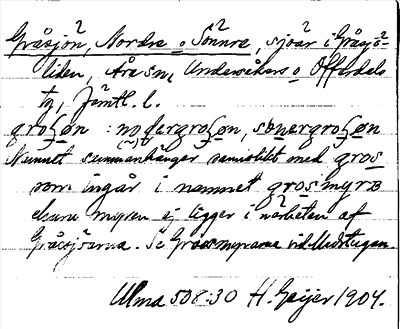 Gråsjön, Nordre o Sönnre, sjöar i Gråsjö-
liden, Åre sn, Undersåkers o Offerdals
tg, Jämtl. l.
groʃøn : noḍergroʃøn, sønergroʃøn
Namnet sammanhänger sannolikt med gros
som ingår i namnet grosmyra
denna myren ej ligger i närheten af
Gråsjöarna. Se Grossmyrarna vid Medstugan.
Ulma 508:30 H. Geijer 1904.